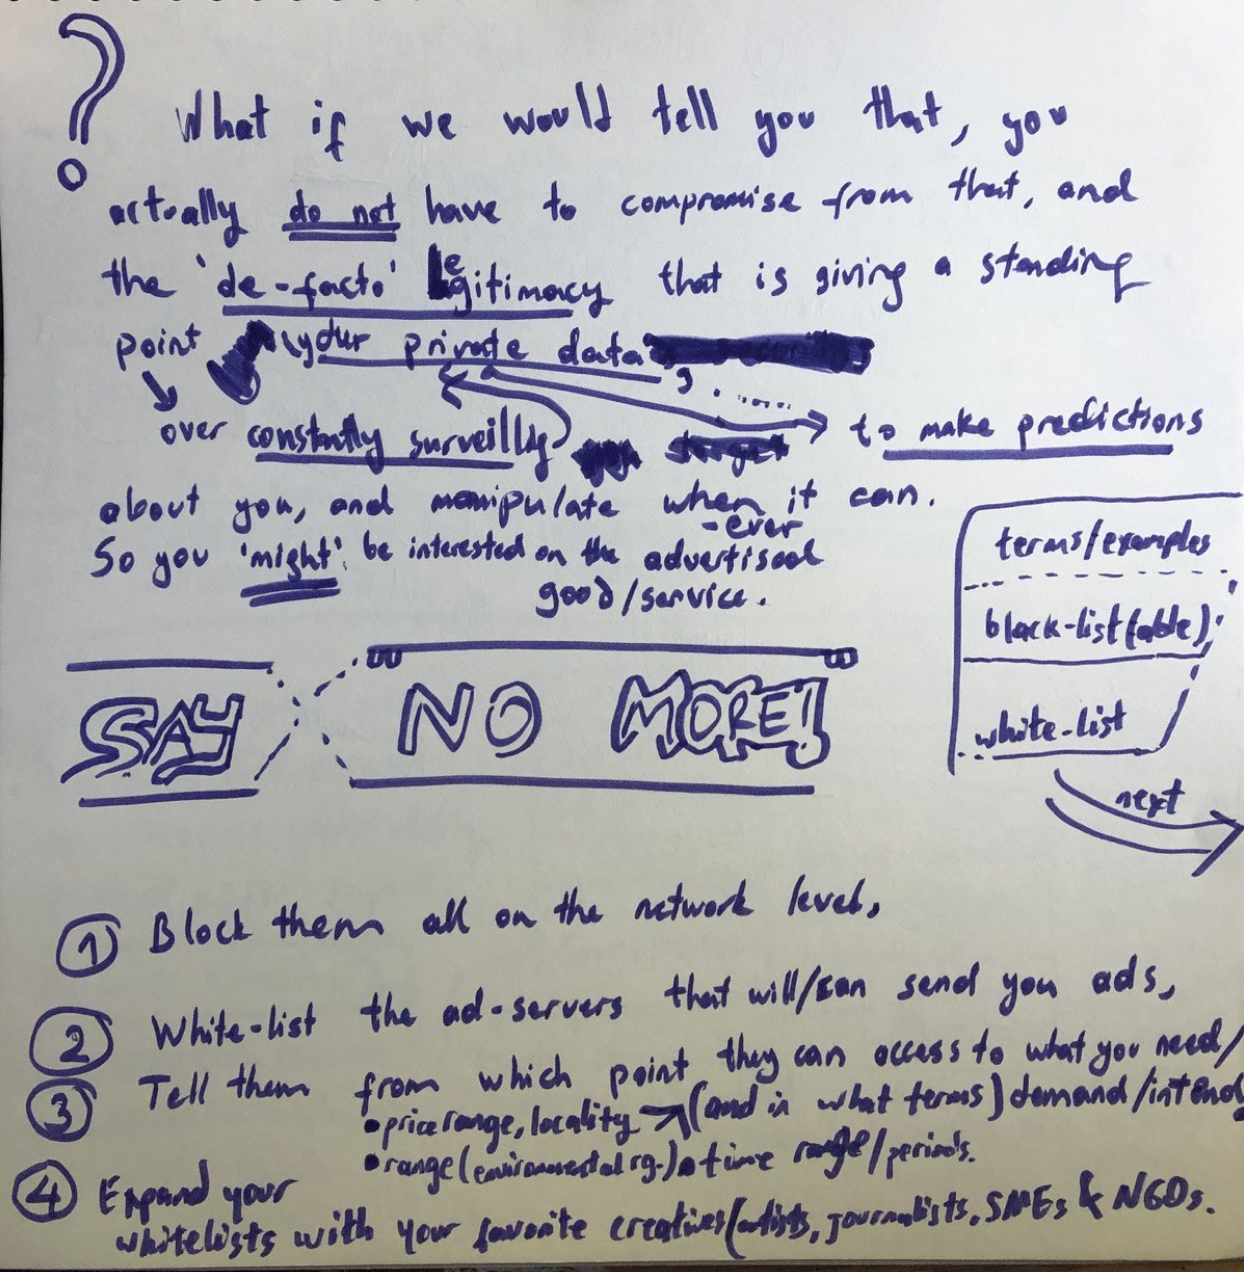 ?
What if we would tell you that, you
actually do not have to compromise from that, and
the 'de-facto' legitimacy that is giving a standing
point your private data,
over constantly surveilling to make predictions
about you, and manipulate when it can.
-ever
So you 'might' be interested on the advertised
good/service.
terms/examples
black-list(able)
white-list
next
SAY NO MORE!
1 Block them all on the network level,
2 White-list the ad-servers that will/can send you ads,
3 Tell them from which point they can access to what you need/
• price range, locality (and in what terms) demand/intend
• range (environmental rg.) • time range/periods.
4 Expand your
whitelists with your favorite creatives (artists, journalists, SMEs & NGOs.